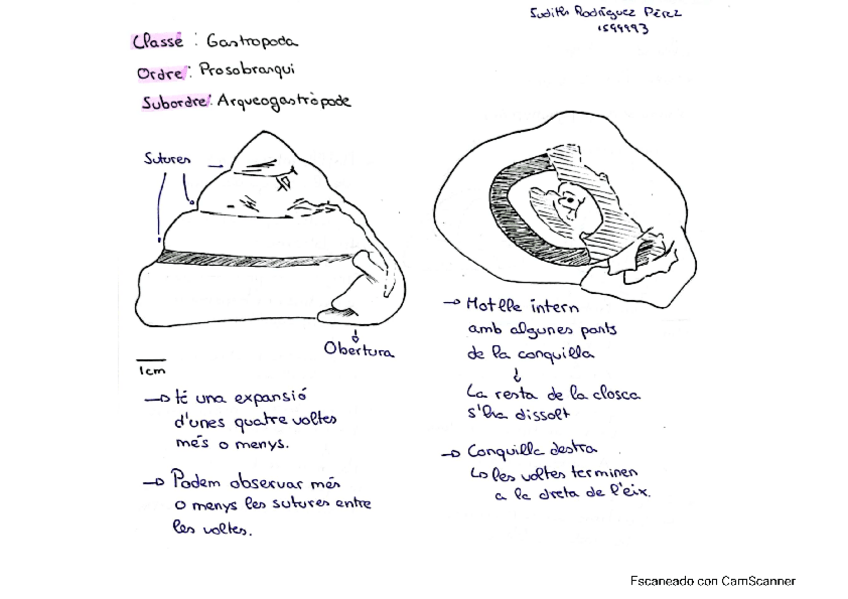 Judith Rodríguez Pérez
1599993
Classe : Gastropoda
Ordre : Prosobranqui
Subordre : Arqueogastròpode
Sutures
Obertura
1cm
→ té una expansió
d'unes quatre voltes
més o menys.
→ Podem observar més
o menys les sutures entre
les voltes.
→ Motlle intern
amb algunes parts
de la conquilla
↓
La resta de la closca
s'ha dissolt
→ Conquilla destra
↳ les voltes terminen
a la dreta de l'eix.
Escaneado con CamScanner